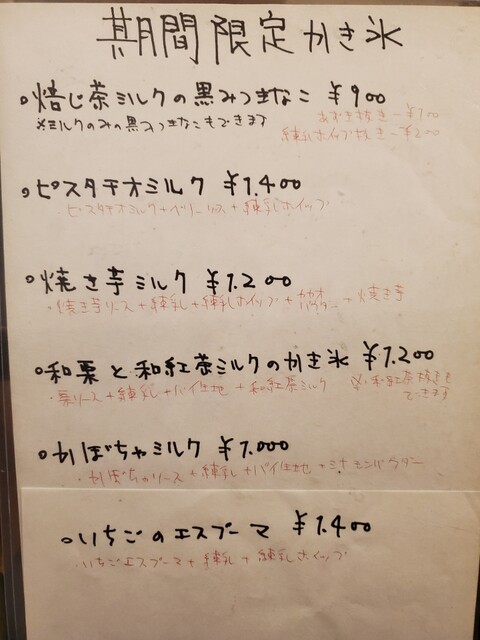 期間限定かき氷
焙じ茶ミルクの黒みつきなこ ¥900
※ミルクのみの黒みつきなこもできます
あずき抜き -¥100
練乳ホイップ抜き -¥200
ピスタチオミルク ¥1.400
・ピスタチオミルク+ベリーソース+練乳ホイップ
焼き芋ミルク ¥1.200
・焼き芋ソース+練乳+練乳ホイップ+カカオパウダー+焼き芋
和栗と和紅茶ミルクのかき氷 ¥1.200
・栗ソース+練乳+パイ生地+和紅茶ミルク ※和紅茶抜きも
できます
かぼちゃミルク ¥1.000
・かぼちゃソース+練乳+パイ生地+シナモンパウダー
いちごのエスプーマ ¥1.400
・いちごエスプーマ+練乳+練乳ホイップ